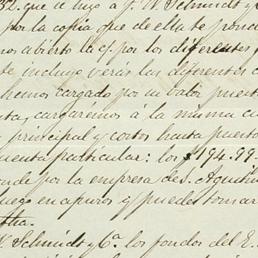 32. que se hizo a J. W. Schmidt y C
por la copia que de ella te pon
nos abierto la c/ por los diferentes
te incluyo verás las diferentes c
hemos cargado por su valor puest
ta, cargaremos á la misma cu
principal y costos hasta puesto
uenta particular: los $194.99
nde por la empresa de S. Agustin
uego en apuros y puedes tomar
tha.
W. Schmidt y Ca. los fondos del E.